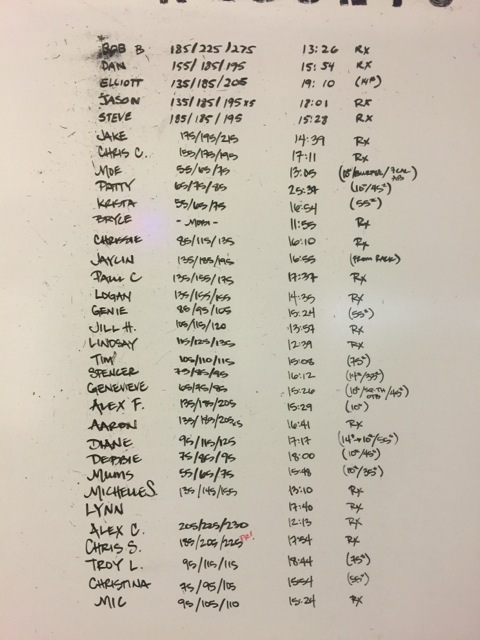 BOB B 185/225/275 13:26 RX
DAN 155/185/195 15:54 RX
ELLIOTT 135/185/205 19:10 (14#)
JASON 135/185/195x5 18:01 RX
STEVE 185/185/195 15:28 RX
JAKE 175/195/215 14:39 RX
CHRIS C. 155/175/195 17:11 RX
MOE 55/65/75 13:05
PATTY 65/75/85 25:37 (10#/45#)
KRISTA 55/65/75 16:54 (55#)
BRYCE 11:55 RX
CHRISSIE 85/115/135 16:10 RX
JAYLIN 135/185/195 16:55 (FROM RACK)
PAUL C 135/155/175 17:37 RX
LOGAN 135/155/155 14:35 RX
GENIE 85/95/105 15:24 (55#)
JILL H. 105/115/120 13:57 RX
LINDSAY 115/125/135 12:39 RX
TIM 105/110/115 15:08 (75#)
SPENCER 75/85/95 16:12 (14#/35#)
GENEVIEVE 65/75/85 15:26
ALEX F. 135/185/205 15:29 (10#)
AARON 135/185/205x5 16:41 RX
DIANE 95/115/125 17:17 (14#→10#/55#)
DEBBIE 75/85/95 18:00 (10#/45#)
MUMS 55/65/75 15:48 (10#/35#)
MICHELLE S. 135/145/155 13:10 RX
LYNN 17:40 RX
ALEX C. 205/225/230 12:13 RX
CHRIS S. 185/205/225 PR! 17:54 RX
TROY L. 95/115/115 18:44 (75#)
CHRISTINA 75/95/105 15:54 (55#)
MIC 95/105/110 15:24 RX